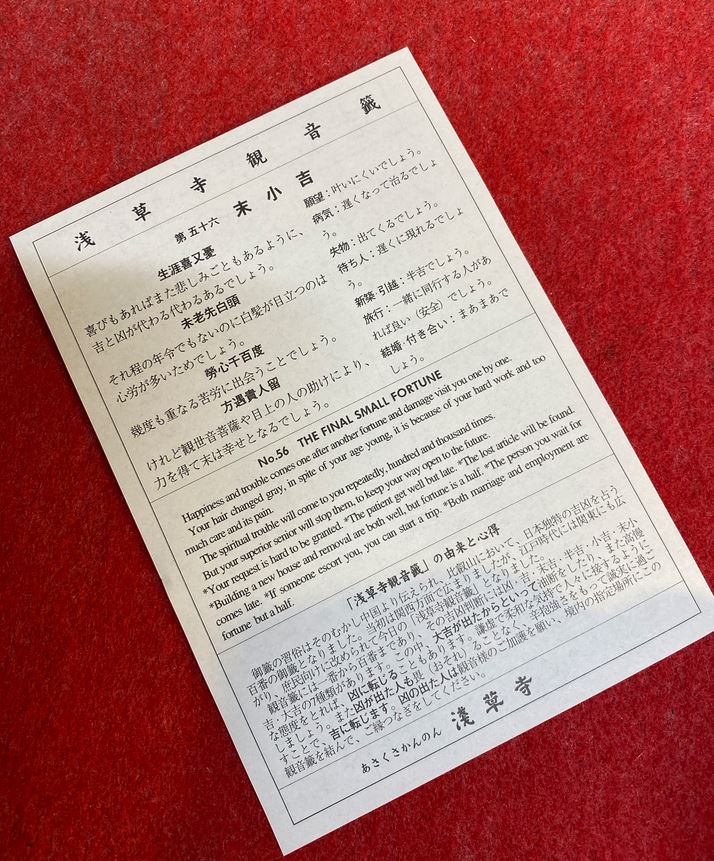 浅草寺観音籤
第五十六 末小吉
生涯喜又憂
喜びもあればまた悲しみごともあるように、
吉と凶が代わる代わるあるでしょう。
未老先白頭
それ程の年令でもないのに白髪が目立つのは
心労が多いためでしょう。
勞心千百度
幾度も重なる苦労に出会うことでしょう。
方遇貴人留
けれど観世音菩薩や目上の人の助けにより、
力を得て末は幸せとなるでしょう。
願望：叶いにくいでしょう。
病気：遅くなって治るでしょ
う。
失物：出てくるでしょう。
待ち人：遅くに現れるでしょ
う。
新築・引越：半吉でしょう。
旅行：一緒に同行する人があ
れば良い（安全）でしょう。
結婚・付き合い：まあまあで
しょう。
No.56 THE FINAL SMALL FORTUNE
Happiness and trouble comes one after another fortune and damage visit you one by one.
Your hair changed gray, in spite of your age young, it is because of your hard work and too
much care and its pain.
The spiritual trouble will come to you repeatedly, hundred and thousand times.
But your superior senior will stop them, to keep your way open to the future.
*Your request is hard to be granted. *The patient get well but late. *The lost article will be found.
*Building a new house and removal are both well, but fortune is a half. *The person you wait for
comes late. *If someone escort you, you can start a trip. *Both marriage and employment are
fortune but a half.
「浅草寺観音籤」の由来と心得
御籤の習俗はそのむかし中国より伝えられ、比叡山において、日本独特の吉凶を占う
百番の御籤となりました。当初は関西方面で広まりましたが、江戸時代には関東にも広
がり、庶民向けに改められて今日の「浅草寺観音籤」となりました。
観音籤には一番から百番まであり、その吉凶判断には凶・吉・末吉・半吉・小吉・末小
吉・大吉の7種類があります。この中、大吉が出たからといって油断をしたり、また高慢
な態度をとれば、凶に転じることもあります。謙虚で柔和な気持で人々に接するように
しましょう。また凶が出た人も畏（おそれ）ることなく、辛抱強さをもって誠実に過ご
すことで、吉に転じます。凶の出た人は観音様のご加護を願い、境内の指定場所にこの
観音籤を結んで、ご縁つなぎをしてください。
あさくさかんのん 浅草寺